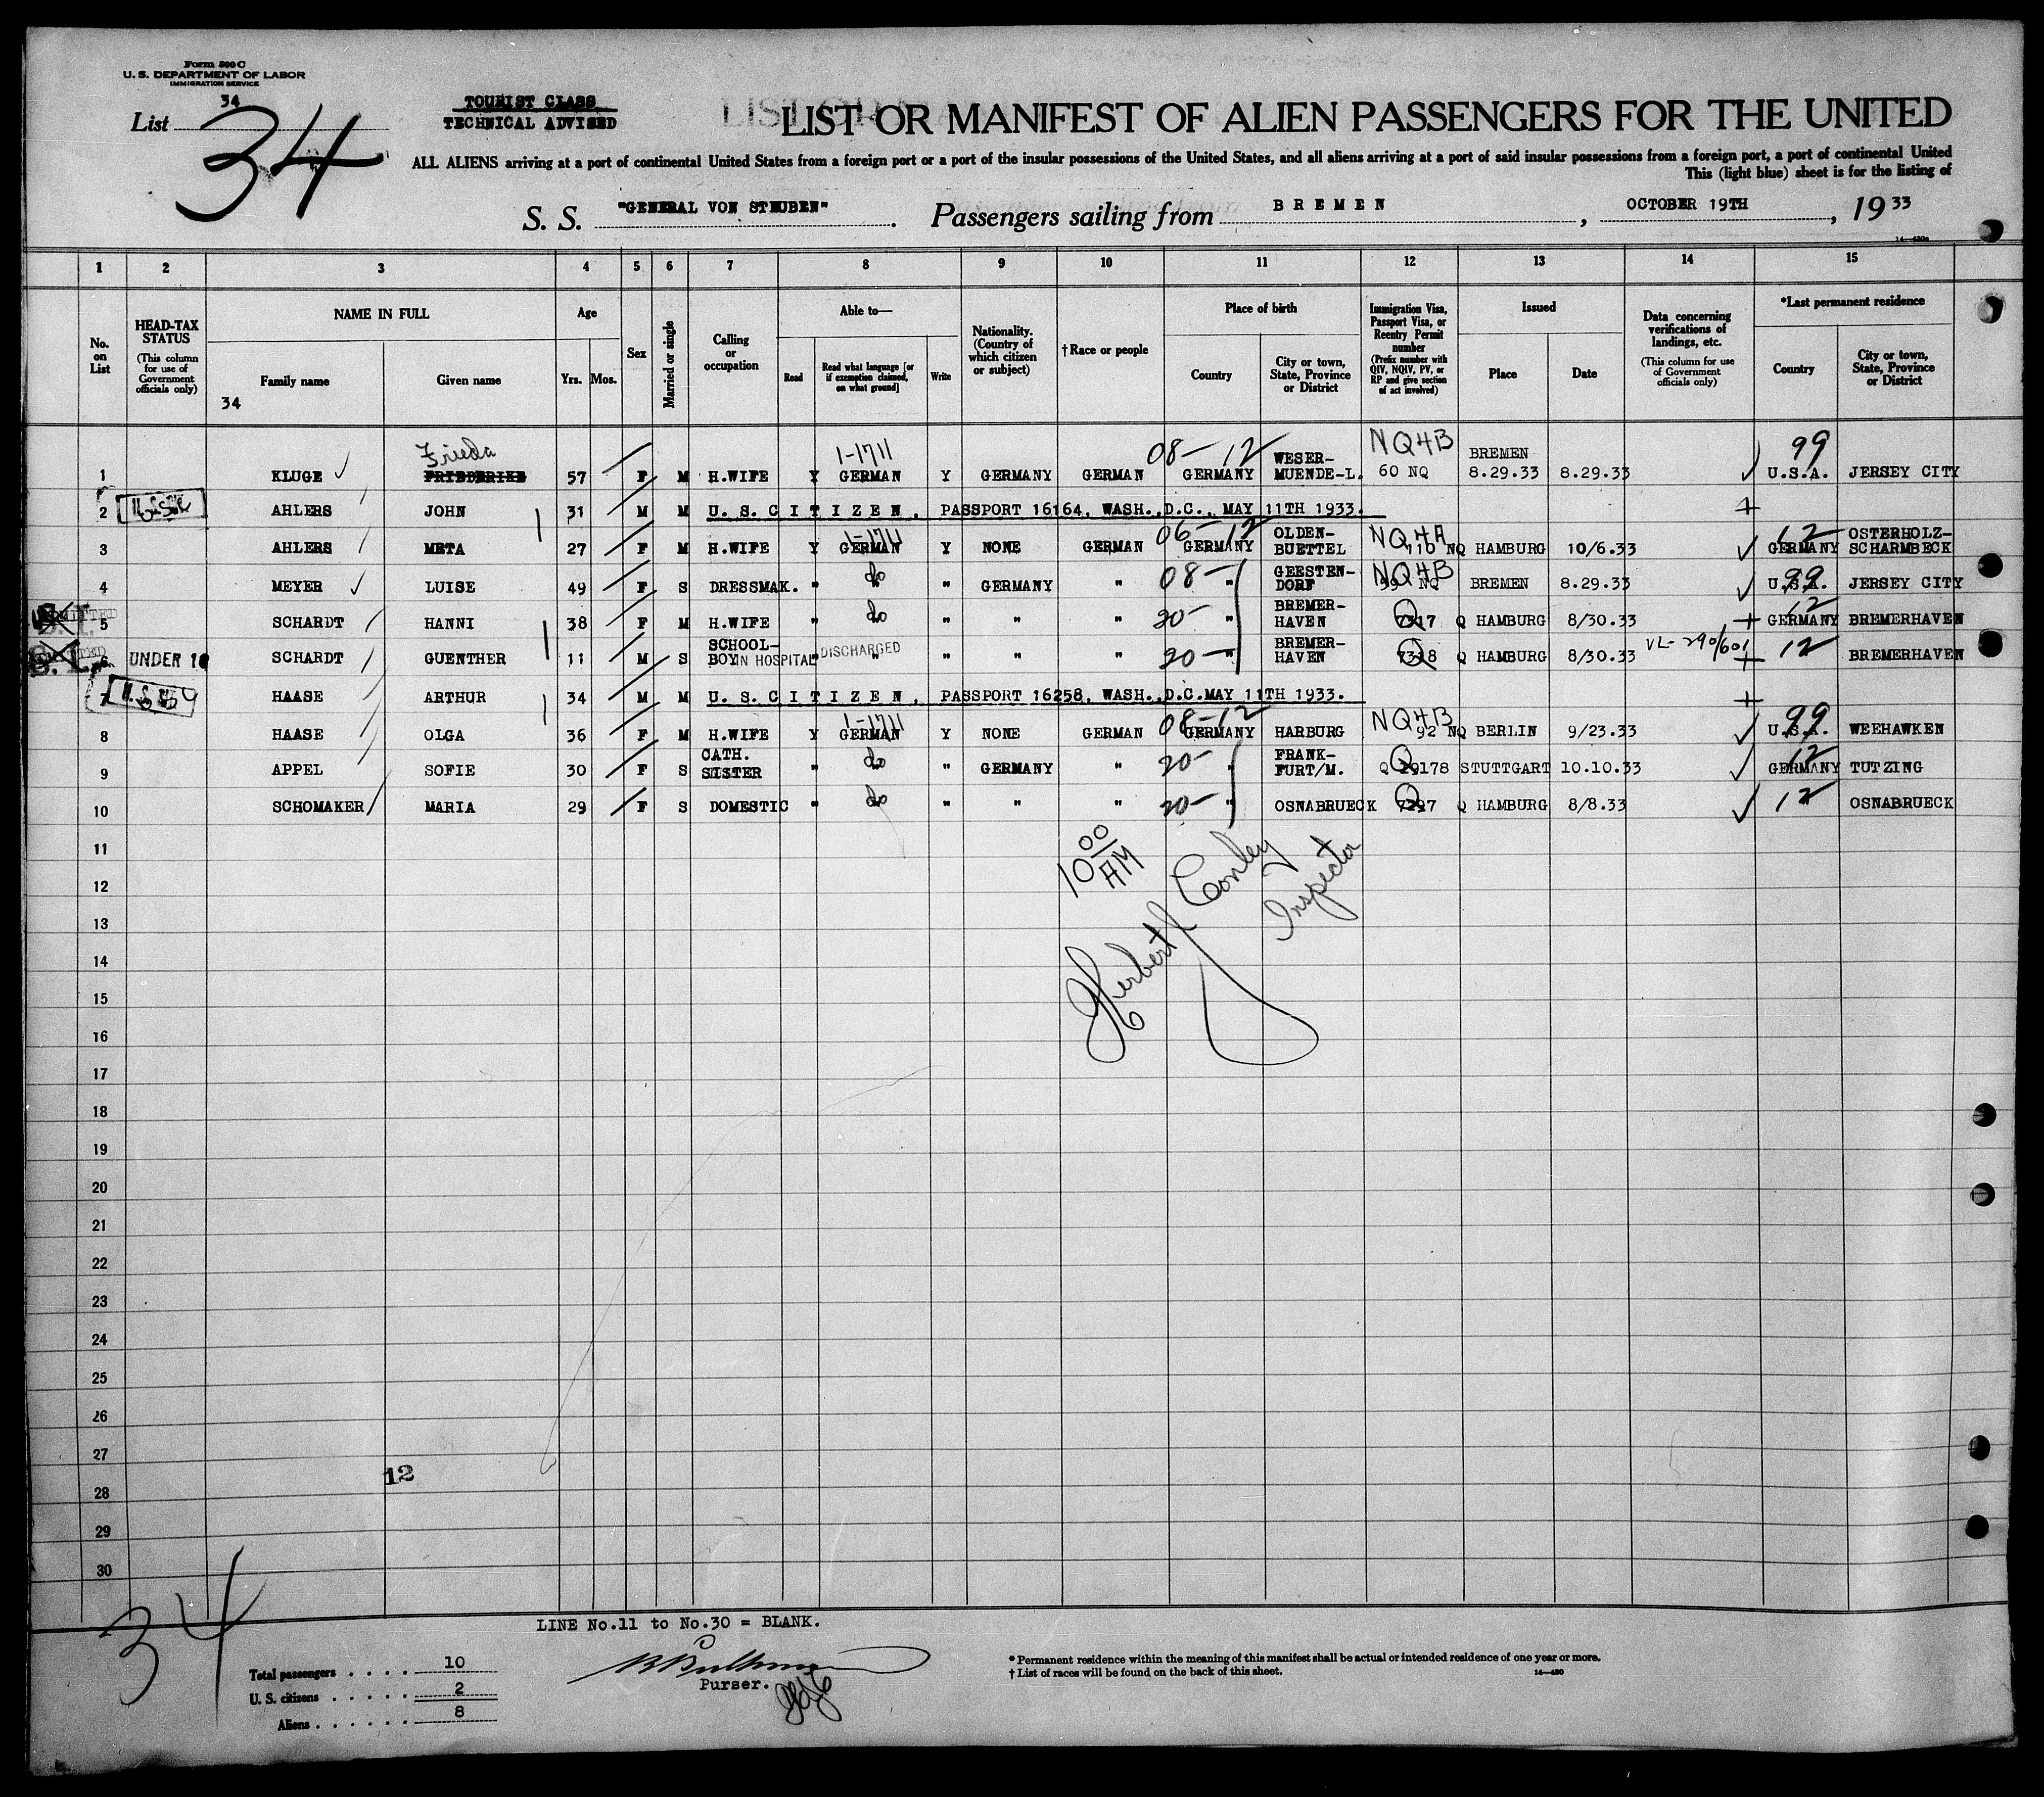 Form 500 C
U. S. DEPARTMENT OF LABOR
IMMIGRATION SERVICE
List 34
34
TOURIST CLASS
TECHNICAL ADVISED
LIST OR MANIFEST OF ALIEN PASSENGERS FOR THE UNITED
ALL ALIENS arriving at a port of continental United States from a foreign port or a port of the insular possessions of the United States, and all aliens arriving at a port of said insular possessions from a foreign port, a port of continental United
This (light blue) sheet is for the listing of
S. S. "GENERAL VON STEUBEN". Passengers sailing from BREMEN, OCTOBER 19TH, 1933
1 2 3 4 5 6 7 8 9 10 11 12 13 14 15
No. on List
HEAD-TAX STATUS (This column for use of Government officials only)
NAME IN FULL
Family name
Given name
34
Age
Yrs. Mos.
Sex
Married or single
Calling or occupation
Able to—
Read
Read what language [or if exemption claimed, on what ground]
Write
Nationality. (Country of which citizen or subject)
†Race or people
Place of birth
Country
City or town, State, Province or District
Immigration Visa, Passport Visa, or Reentry Permit number (Prefix number with QIV, NQIV, PV, or RP and give section of act involved)
Issued
Place
Date
Data concerning verifications of landings, etc. (This column for use of Government officials only)
*Last permanent residence
Country
City or town, State, Province or District
Frieda 1-1711 08-12 NQ4B BREMEN 99
1 KLUGE FRIEDERIKE 57 F M H.WIFE Y GERMAN Y GERMANY GERMAN GERMANY WESER-MUENDE-L. 60 NQ 8.29.33 8.29.33 U.S.A. JERSEY CITY
2 AHLERS JOHN 31 M M U. S. C I T I Z E N, PASSPORT 16164, WASH., D.C., MAY 11TH 1933.
1-1711 06-12 NQ4A 12
3 AHLERS META 27 F M H.WIFE Y GERMAN Y NONE GERMAN GERMANY OLDEN-BUETTEL 110 NQ HAMBURG 10/6.33 GERMANY OSTERHOLZ-SCHARMBECK
do 08- NQ4B 99
4 MEYER LUISE 49 F S DRESSMAK. " " " GERMANY " " GEESTEN-DORF 59 NQ BREMEN 8.29.33 U.S.A. JERSEY CITY
do 20- Q 12
5 SCHARDT HANNI 38 F M H.WIFE " " " " " BREMER-HAVEN 7317 Q HAMBURG 8/30.33 GERMANY BREMERHAVEN
20- Q VL-290/601 12
6 UNDER 16 SCHARDT GUENTHER 11 M S SCHOOL-BOY IN HOSPITAL DISCHARGED " " " " " BREMER-HAVEN 7318 Q HAMBURG 8/30.33 BREMERHAVEN
7 HAASE ARTHUR 34 M M U. S. C I T I Z E N, PASSPORT 16258, WASH., D.C. MAY 11TH 1933.
1-1711 08-12 NQ4B 99
8 HAASE OLGA 36 F M H.WIFE Y GERMAN Y NONE GERMAN GERMANY HARBURG 92 NQ BERLIN 9/23.33 U.S.A. WEEHAWKEN
do 20- Q 12
9 APPEL SOFIE 30 F S CATH. SISTER " " " GERMANY " " FRANK-FURT/M. Q 29178 STUTTGART 10.10.33 GERMANY TUTZING
do 20- Q 12
10 SCHOMAKER MARIA 29 F S DOMESTIC " " " " " OSNABRUECK 7297 Q HAMBURG 8/8.33 OSNABRUECK
10 00 AM
Herbert Conley
Inspector
11
12
13
14
15
16
17
18
19
20
21
22
23
24
25
26
27
12
28
29
30
34
LINE No.11 to No.30 = BLANK.
Total passengers . . . . 10
U. S. citizens . . . . . 2
Aliens . . . . . . 8
Purser.
* Permanent residence within the meaning of this manifest shall be actual or intended residence of one year or more.
† List of races will be found on the back of this sheet.